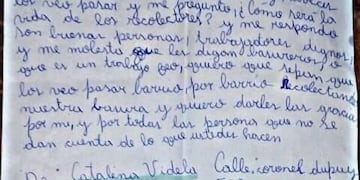 los veo pasar y me pregunto ¿como será la
vida de los recolectores? y me respondo
son buenas personas trabajadores dignos
y me molesta que les digan basureros, o
que es un trabajo feo, quiero que sepan que
los veo pasar barrio por barrio Recolectando
nuestra basura y quiero darles las gracias
por mi, y por todas las personas que no se
dan cuenta de lo que ustedes hacen
De: Catalina Videla Calle: coronel dupuy